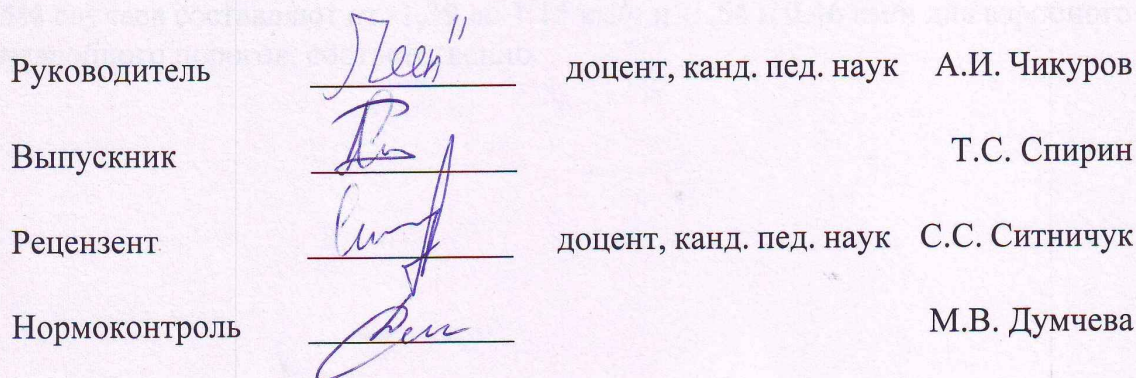 Руководитель доцент, канд. пед. наук А.И. Чикуров
Выпускник Т.С. Спирин
Рецензент доцент, канд. пед. наук С.С. Ситничук
Нормоконтроль М.В. Думчева